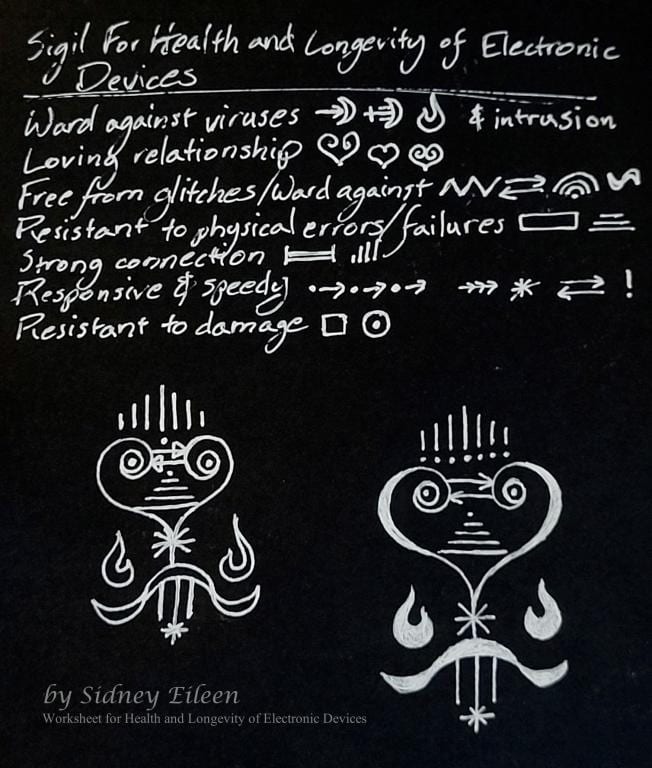 Sigil For Health and Longevity of Electronic
Devices
Ward against viruses & intrusion
Loving relationship
Free from glitches/Ward against
Resistant to physical errors/failures
Strong connection
Responsive & speedy !
Resistant to damage
by Sidney Eileen
Worksheet for Health and Longevity of Electronic Devices